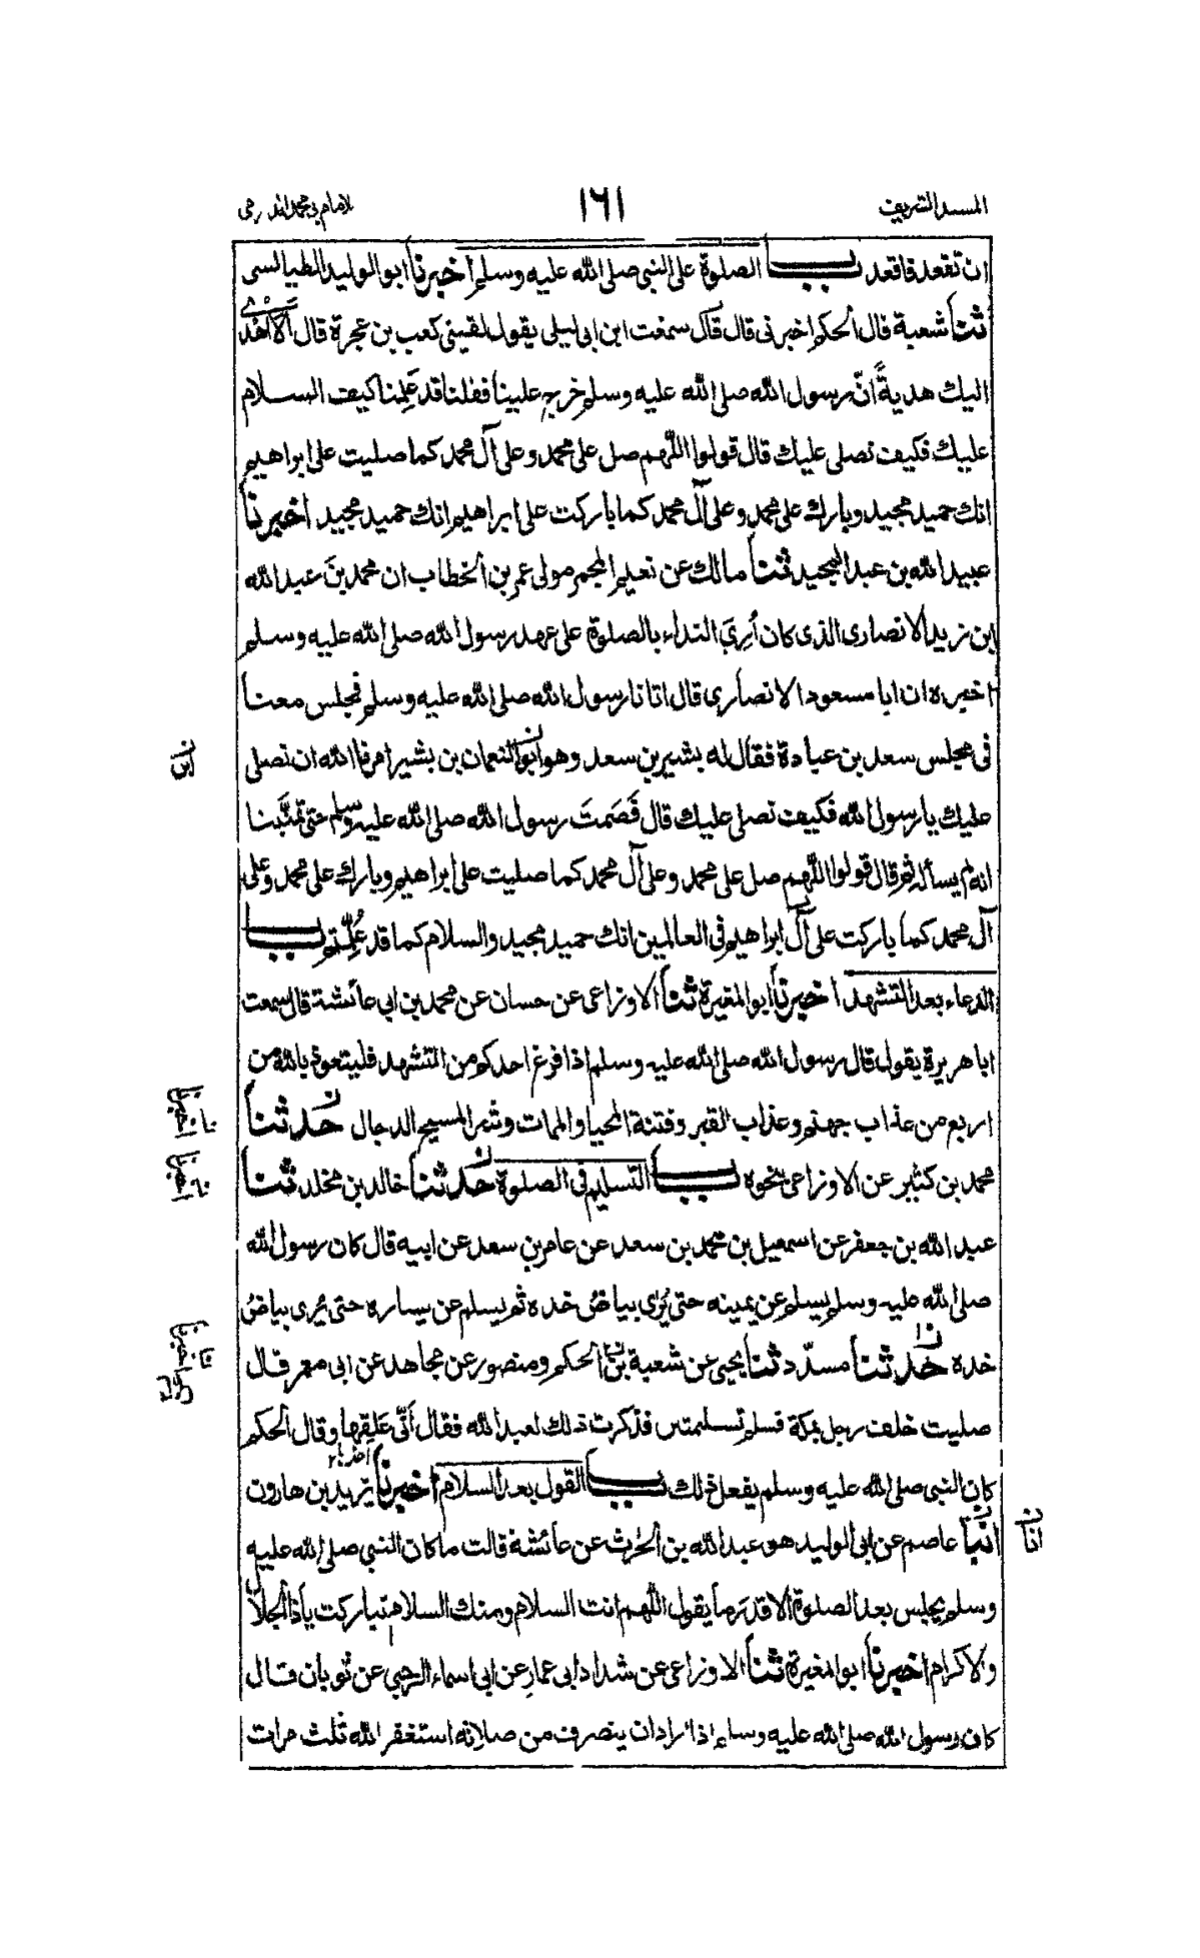 المسند الشريف
١٦١
للامام ابي محمد الدارمي
ان تقعد فاقعد باب الصلوة على النبي صلى الله عليه وسلم اخبرنا ابو الوليد الطيالسى
ثنا شعبة قال الحكم اخبرنى قال قال سمعت ابن ابى ليلى يقول لقينى كعب بن عجرة قال ألا أهدى
اليك هديةً انّ رسول الله صلى الله عليه وسلم خرج علينا فقلنا قد عَلِمنا كيف السلام
عليك فكيف نصلى عليك قال قولوا اللّٰهم صل على محمد وعلى آل محمد كما صليت على ابراهيم
انك حميد مجيد وبارك على محمد وعلى آل محمد كما باركت على ابراهيم انك حميد مجيد اخبرنا
عبيد الله بن عبد المجيد ثنا مالك عن نعيم المجمر مولى عمر بن الخطاب ان محمد بن عبد الله
ابن زيد الانصارى الذى كان أُرِىَ النداء بالصلوة على عهد رسول الله صلى الله عليه وسلم
اخبره ان ابا مسعود الانصارى قال اتانا رسول الله صلى الله عليه وسلم فجلس معنا
فى مجلس سعد بن عبادة فقال له بشير بن سعد وهو ابو النعمان بن بشير امرنا الله ان نصلى
ابن
عليك يا رسول الله فكيف نصلى عليك قال فَصَمَتَ رسول الله صلى الله عليه وسلم حتى تمنَّينا
انه لم يسأله ثم قال قولوا اللّٰهم صل على محمد وعلى آل محمد كما صليت على ابراهيم وبارك على محمد وعلى
آل محمد كما باركت على آل ابراهيم فى العالمين انك حميد مجيد والسلام كما قد عُلِّمتم باب
الدعاء بعد التشهد اخبرنا ابو المغيرة ثنا الاوزاعى عن حسان عن محمد بن ابى عائشة قال سمعت
ابا هريرة يقول قال رسول الله صلى الله عليه وسلم اذا فرغ احدكم من التشهد فليتعوذ بالله من
اربع من عذاب جهنم وعذاب القبر وفتنة المحيا والممات وشر المسيح الدجال حدثنا
نا ن اخبرنا
محمد بن كثير عن الاوزاعى بنحوه باب التسليم فى الصلوة حدثنا خالد بن مخلد ثنا
اخبرنا
عبد الله بن جعفر عن اسمعيل بن محمد بن سعد عن عامر بن سعد عن ابيه قال كان رسول الله
صلى الله عليه وسلم يسلم عن يمينه حتى يُرٰى بياضُ خده ثم يسلم عن يساره حتى يُرى بياضُ
خده حدثنا مسدّد ثنا يحيى عن شعبة بن الحكم ومنصور عن مجاهد عن ابى معمر قال
نا ن اخبرنا
صليت خلف رجل بمكة فسلم تسليمتين فذكرت ذلك لعبد الله فقال أنّى عَلِقها وقال الحكم
كان النبى صلى الله عليه وسلم يفعل ذلك باب القول بعد السلام اخبرنا يزيد بن هارون
أنبأ عاصم عن ابى الوليد هو عبد الله بن الحٰرث عن عائشة قالت ما كان النبى صلى الله عليه
انا
وسلم يجلس بعد الصلوة الا قدر ما يقول اللّٰهم انت السلام ومنك السلام تباركت يا ذا الجلال
والاكرام اخبرنا ابو المغيرة ثنا الاوزاعى عن شداد ابى عمار عن ابى اسماء الرحبى عن ثوبان قال
كان رسول الله صلى الله عليه وسلم اذا اراد ان ينصرف من صلاته استغفر الله ثلث مرات